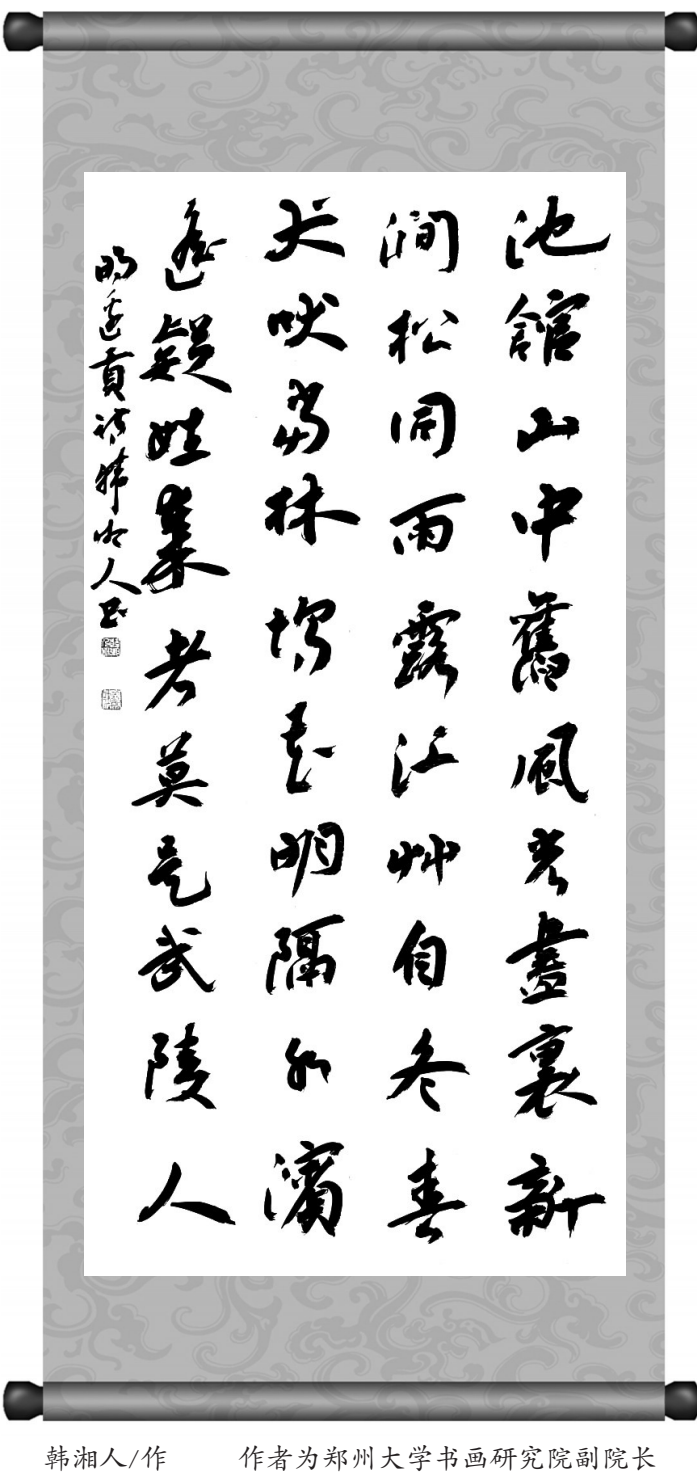 池館山中舊風光畫裏新
澗松同雨露江艸自冬春
犬吠當林塢花明隔水濱
遙疑姓秦者莫是武陵人
明邊貢詩韓湘人書
韩湘人/作 作者为郑州大学书画研究院副院长